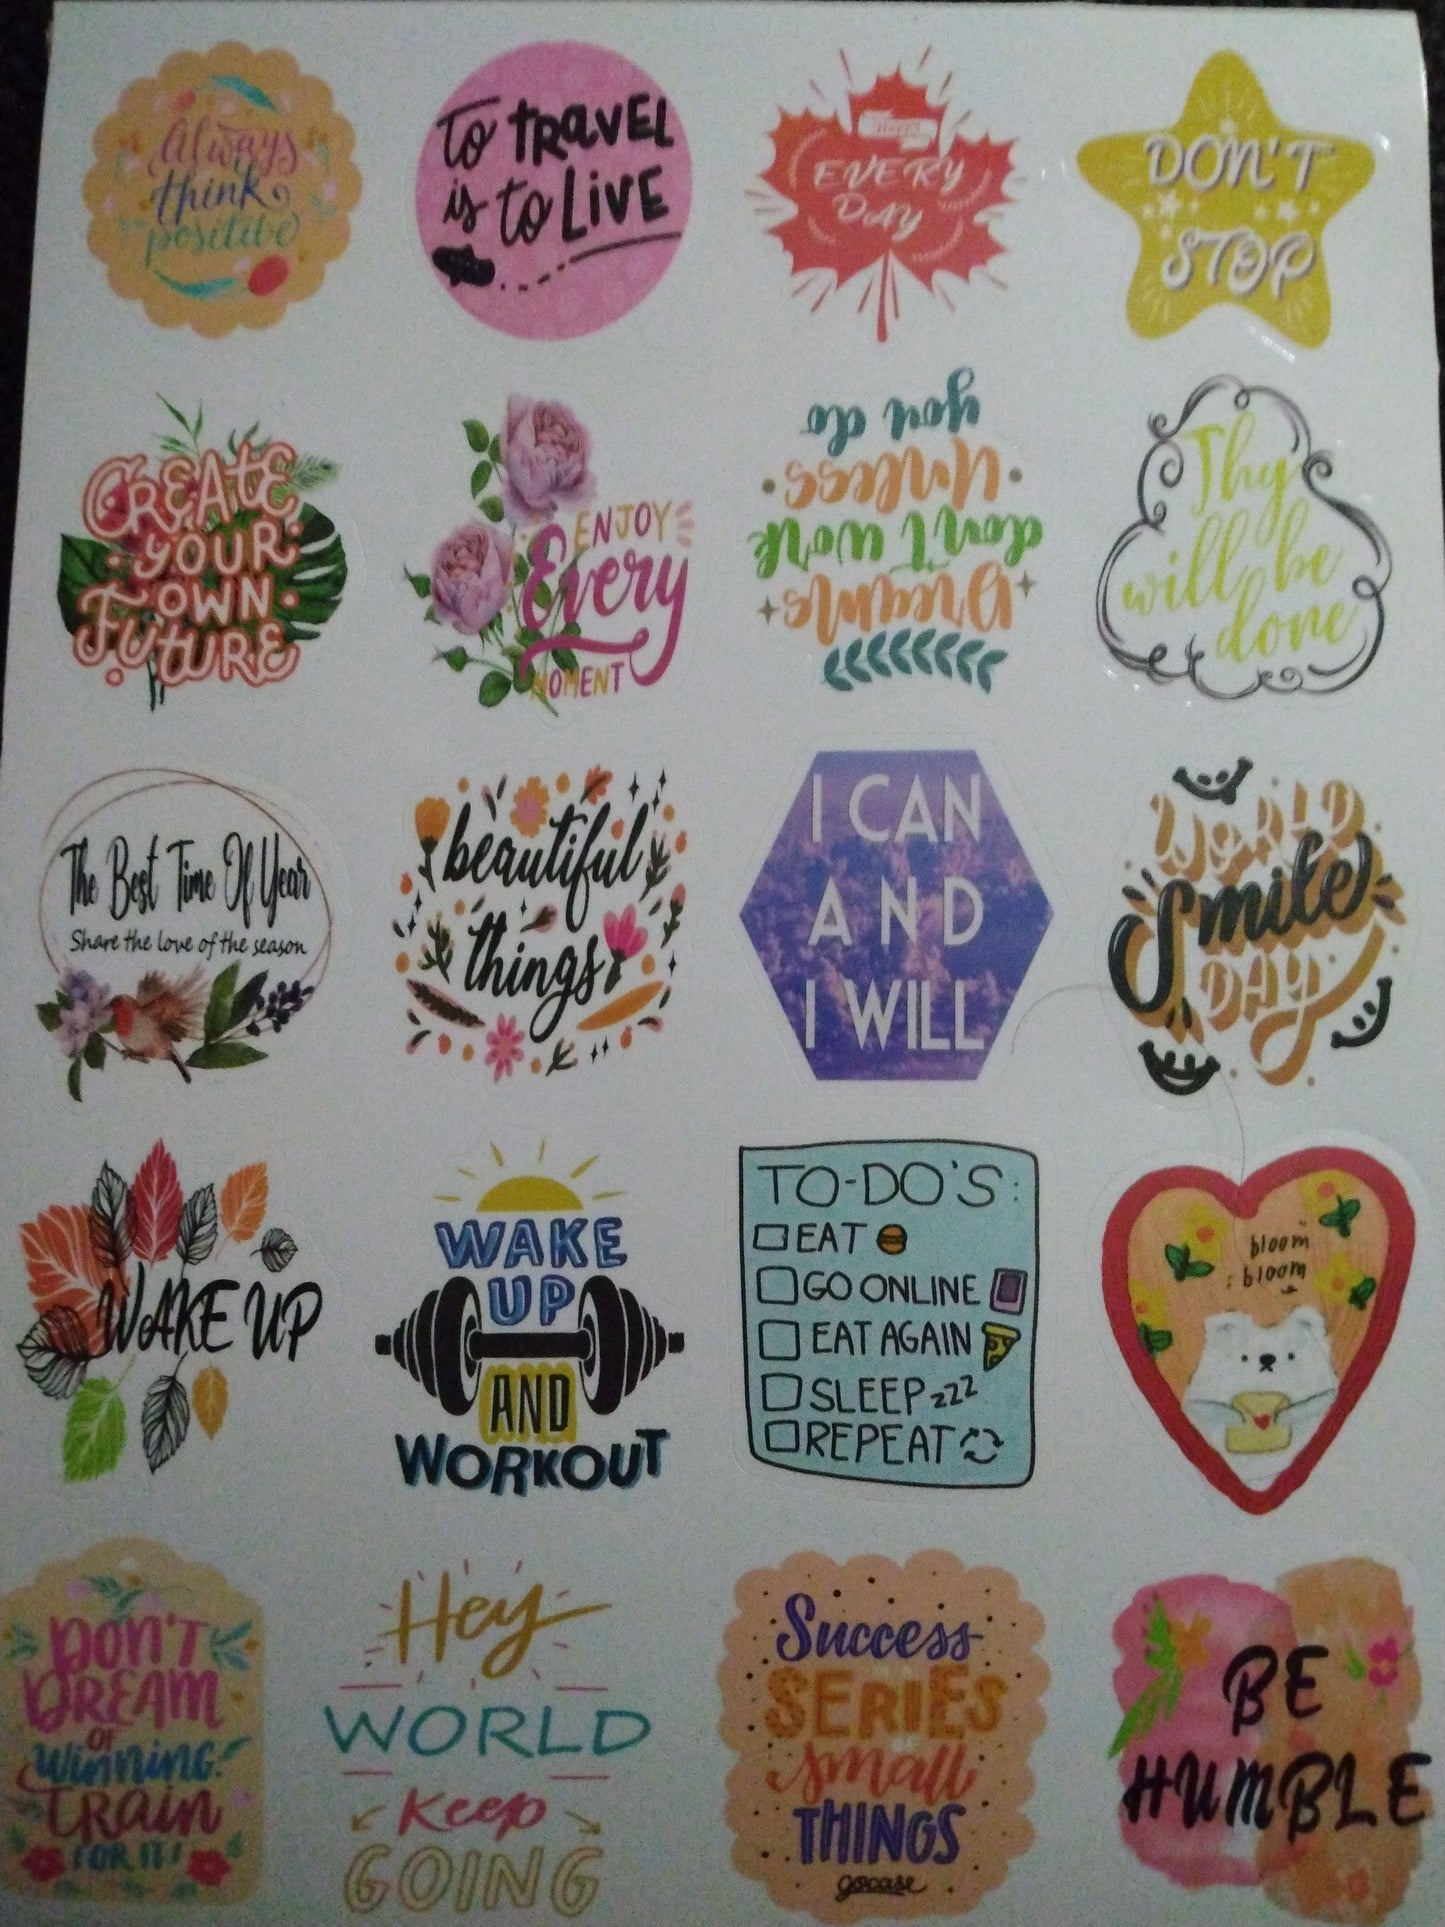 Always
think
positive
to TRAVEL
is to LIVE
Happy
EVERY
DAY
DON'T
STOP
CREATE
YOUR
OWN
FUTURE
ENJOY
Every
MOMENT
Dreams
don't work
Unless
you do
Thy
will be
done
The Best Time Of Year
Share the love of the season
beautiful
things
I CAN
AND
I WILL
WORLD
Smile
DAY
WAKE UP
WAKE
UP
AND
WORKOUT
TO-DO'S:
EAT
GO ONLINE
EAT AGAIN
SLEEP zzz
REPEAT
bloom
bloom
DON'T
DREAM
OF
Winning.
TRAIN
FOR IT!
Hey
WORLD
Keep
GOING
Success
SERIES
small
THINGS
gocase
BE
HUMBLE